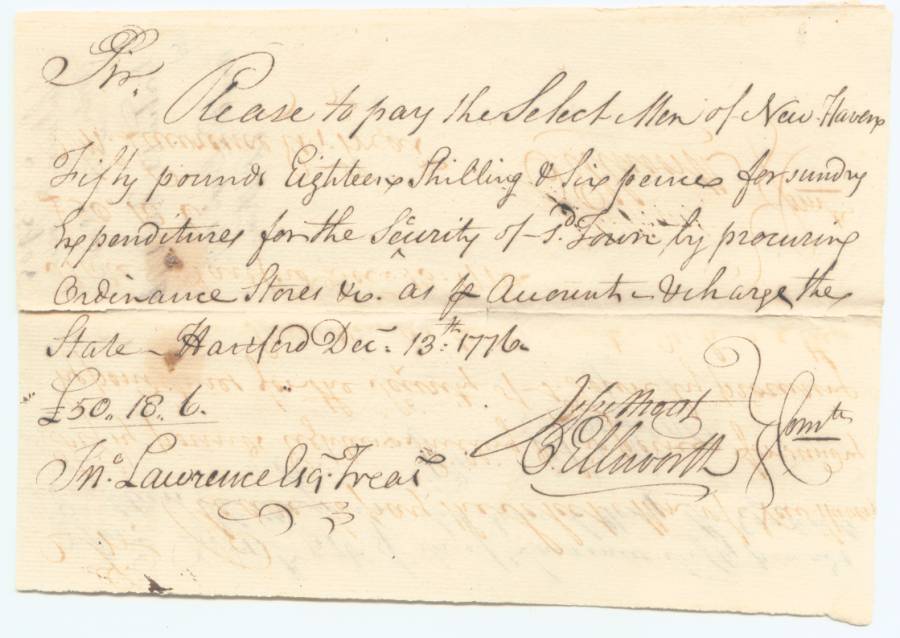 Sir,
Please to pay the Select Men of New Haven
Fifty pounds Eighteen Shilling & Six pence for sundry
Expenditures for the Security of sd. Town by procuring
Ordinance Stores &c. as pr Account - & charge the
State - Hartford Decr. 13th. 1776.
£50.. 18.. 6.
Jesse Root
O. Ellsworth
Comtte
Jno. Lawrence Esqr. Treasr